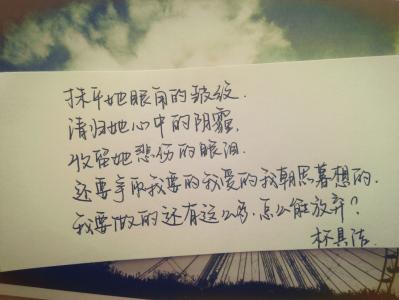 抹平她眼角的皱纹.
清扫她心中的阴霾.
收容她悲伤的眼泪.
还要争取我要的我爱的我朝思暮想的.
我要做的还有这么多,怎么能放弃?
林具洁.